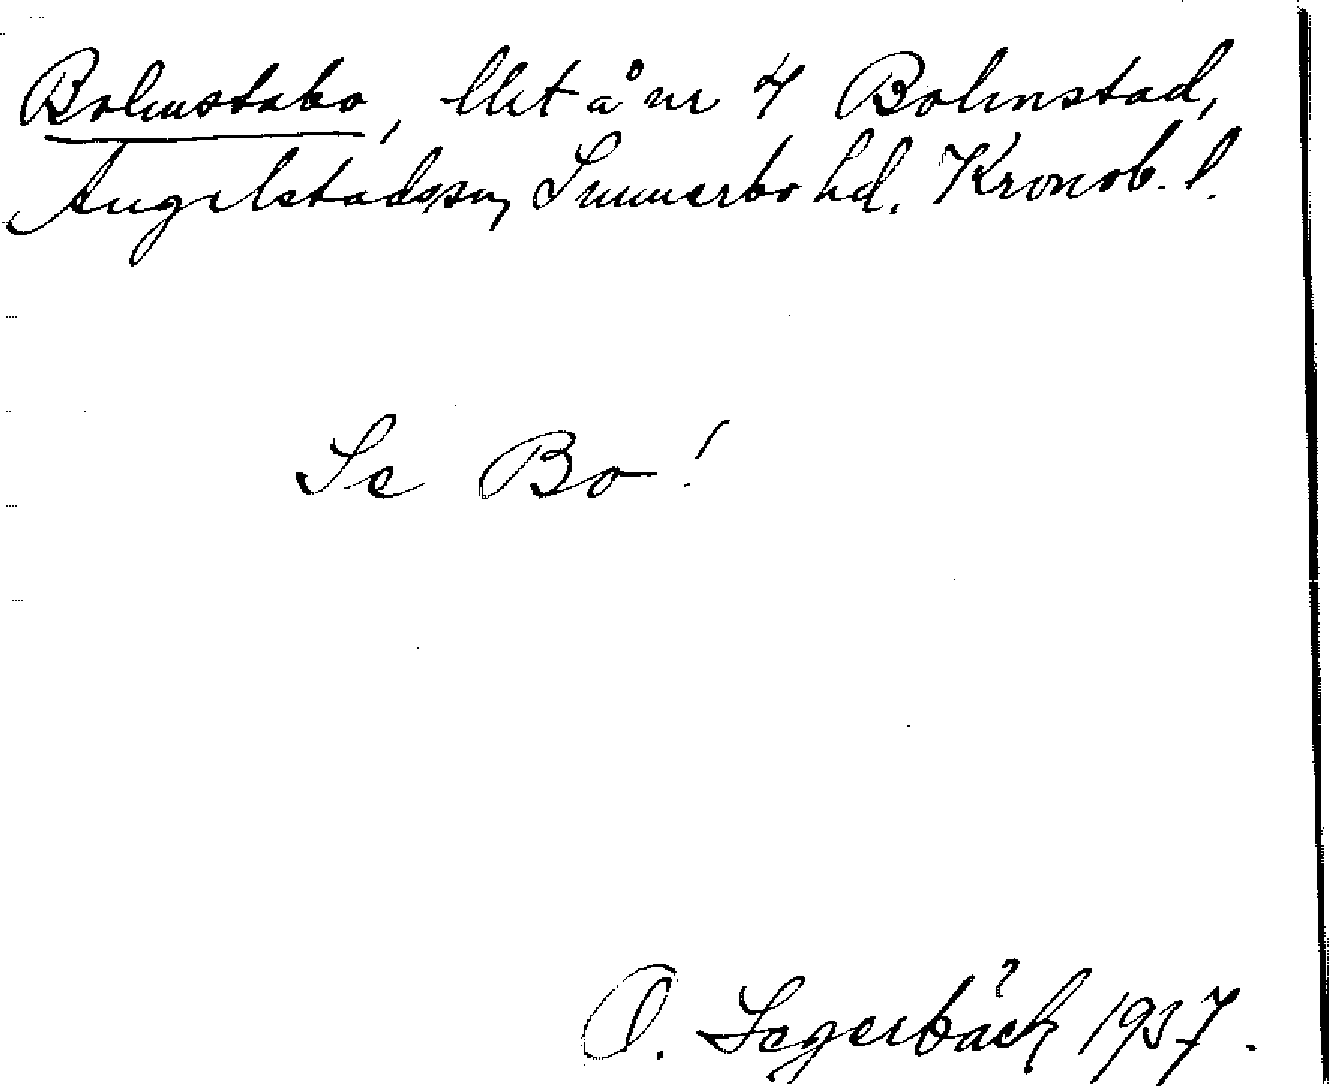 Bolmstabo, lht å nr 4 Bolmstad,
Angelstads sn, Sunnerbo hd. Kronob. l.
Se Bo!
O. Segerbäck 1937.